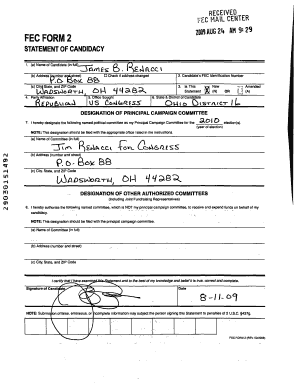 RECEIVED
FEC MAIL CENTER
2009 AUG 24 AM 9:29
FEC FORM 2
STATEMENT OF CANDIDACY
1. (a) Name of Candidate (in full)
JAMES B. RENACCI
(b) Address (number and street) Check if address changed 2. Candidate's FEC Identification Number
P.O BOX 88
(c) City, State, and ZIP Code 3. Is This Statement New (N) OR Amended (A)
WADSWORTH, OH 44282
4. Party Affiliation 5. Office Sought 6. State & District of Candidate
REPUBLICAN US CONGRESS OHIO DISTRICT 16
DESIGNATION OF PRINCIPAL CAMPAIGN COMMITTEE
7. I hereby designate the following named political committee as my Principal Campaign Committee for the 2010 election(s).
(year of election)
NOTE: This designation should be filed with the appropriate office listed in the instructions.
(a) Name of Committee (in full)
JIM RENACCI FOR CONGRESS
(b) Address (number and street)
P.O. BOX 88
(c) City, State, and ZIP Code
WADSWORTH, OH 44282
DESIGNATION OF OTHER AUTHORIZED COMMITTEES
(Including Joint Fundraising Representatives)
8. I hereby authorize the following named committee, which is NOT my principal campaign committee, to receive and expend funds on behalf of my
candidacy.
NOTE: This designation should be filed with the principal campaign committee.
(a) Name of Committee (in full)
(b) Address (number and street)
(c) City, State, and ZIP Code
I certify that I have examined this Statement and to the best of my knowledge and belief it is true, correct and complete.
Signature of Candidate Date
8-11-09
NOTE: Submission of false, erroneous, or incomplete information may subject the person signing this Statement to penalties of 2 U.S.C. §437g.
FEC FORM 2
29030151492